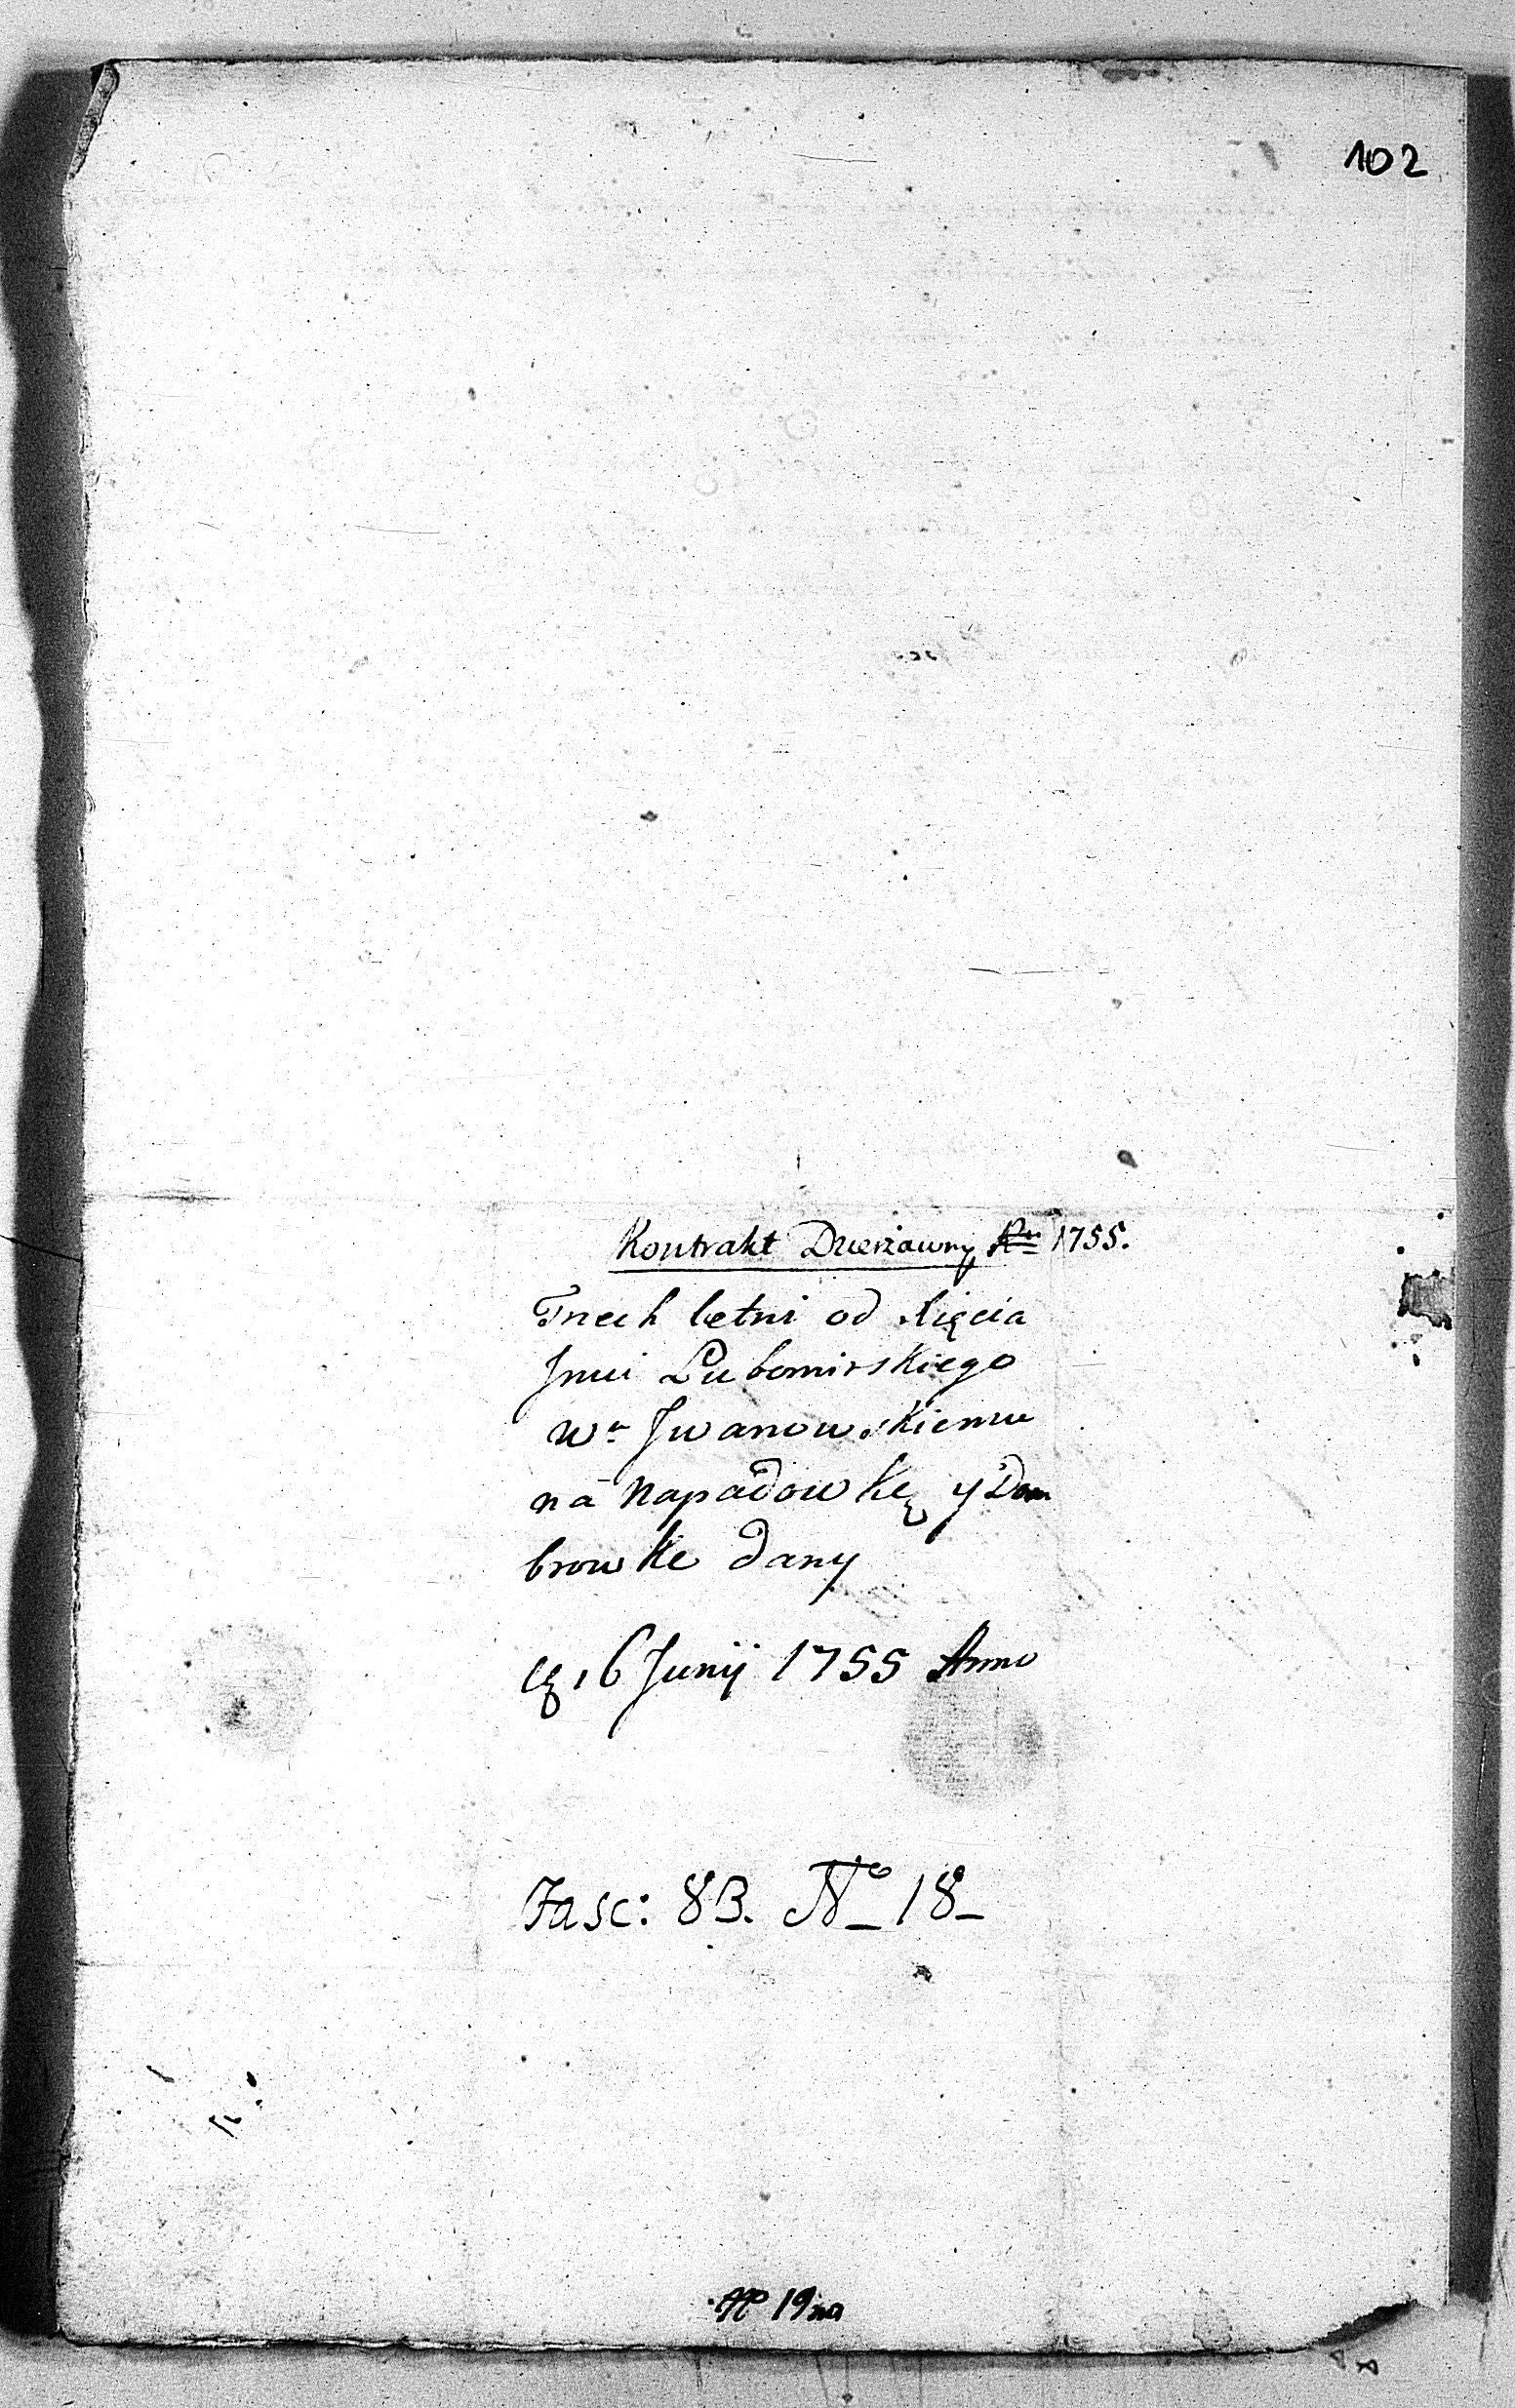 102
Kontrakt Dzierżawny Ru 1755.
Trzech letni od Xięcia
Jmci Lubomirskiego
Wu Jwanowskiemu
na Napadowkę y Dom
browke dany
16 Junij 1755 Anno
Fasc: 83. No 18
No 19